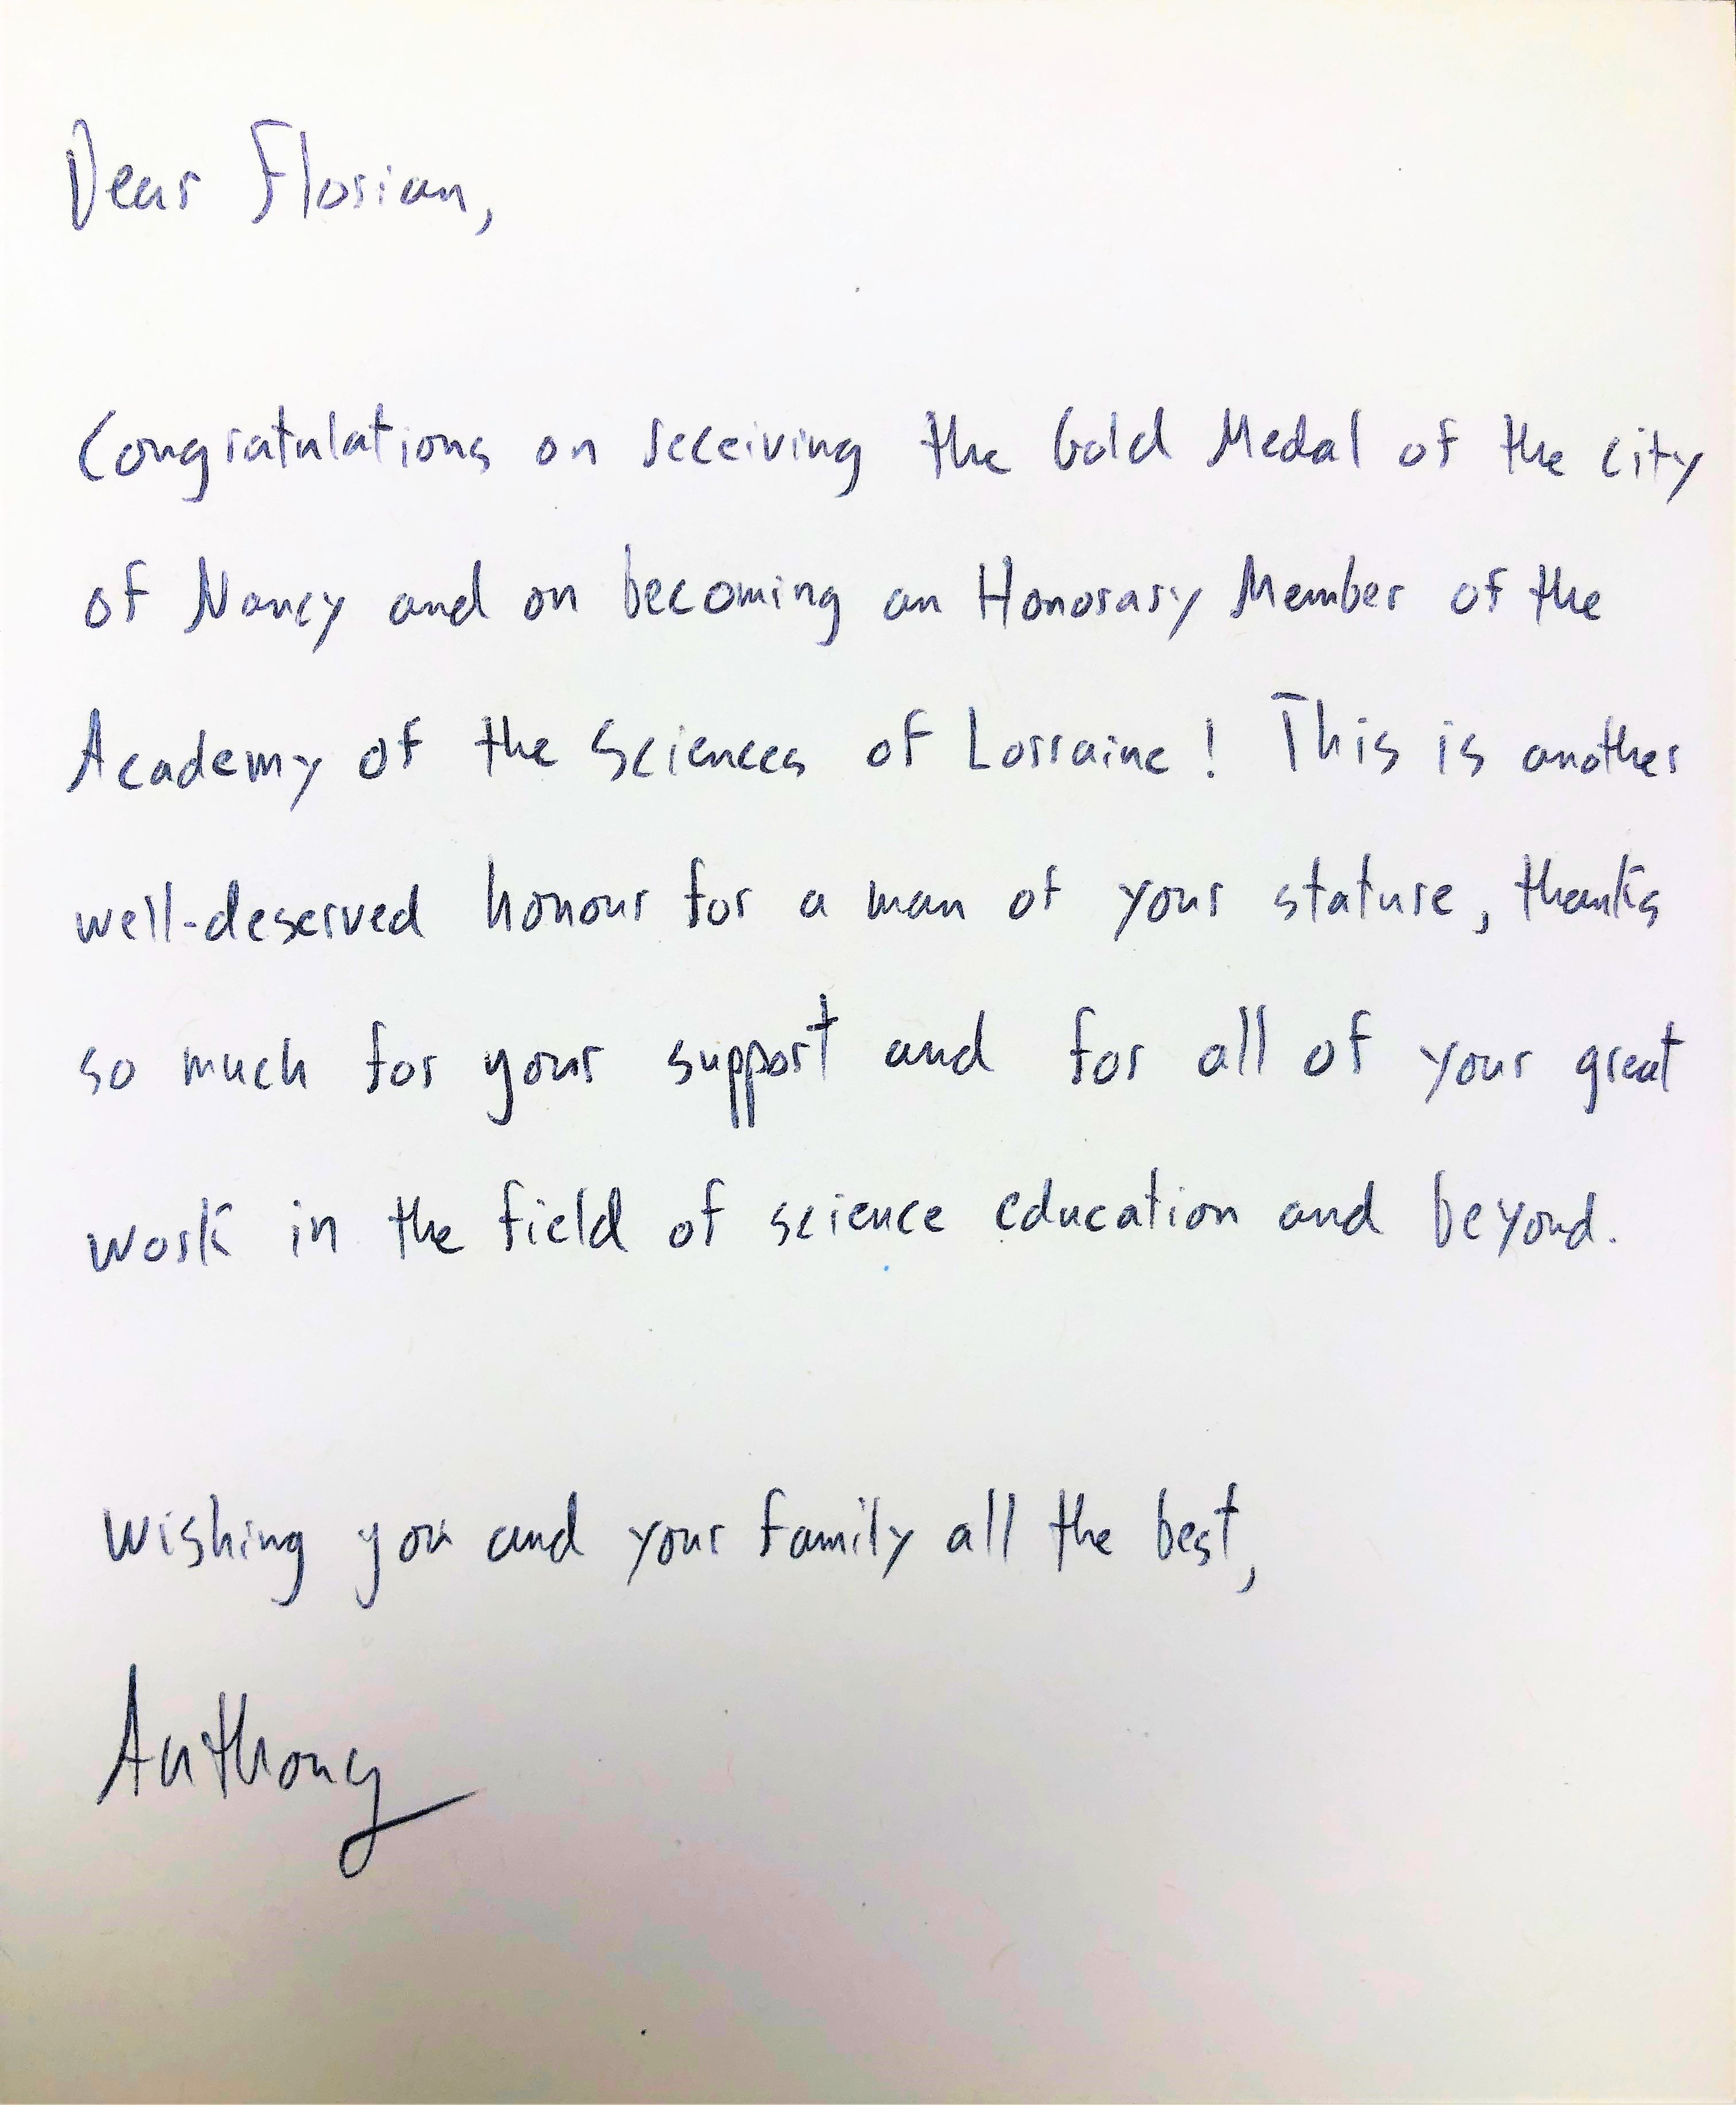 Dear Florian,
Congratulations on receiving the Gold Medal of the city
of Nancy and on becoming an Honorary Member of the
Academy of the Sciences of Lorraine! This is another
well-deserved honour for a man of your stature, thanks
so much for your support and for all of your great
work in the field of science education and beyond.
Wishing you and your family all the best,
Anthony